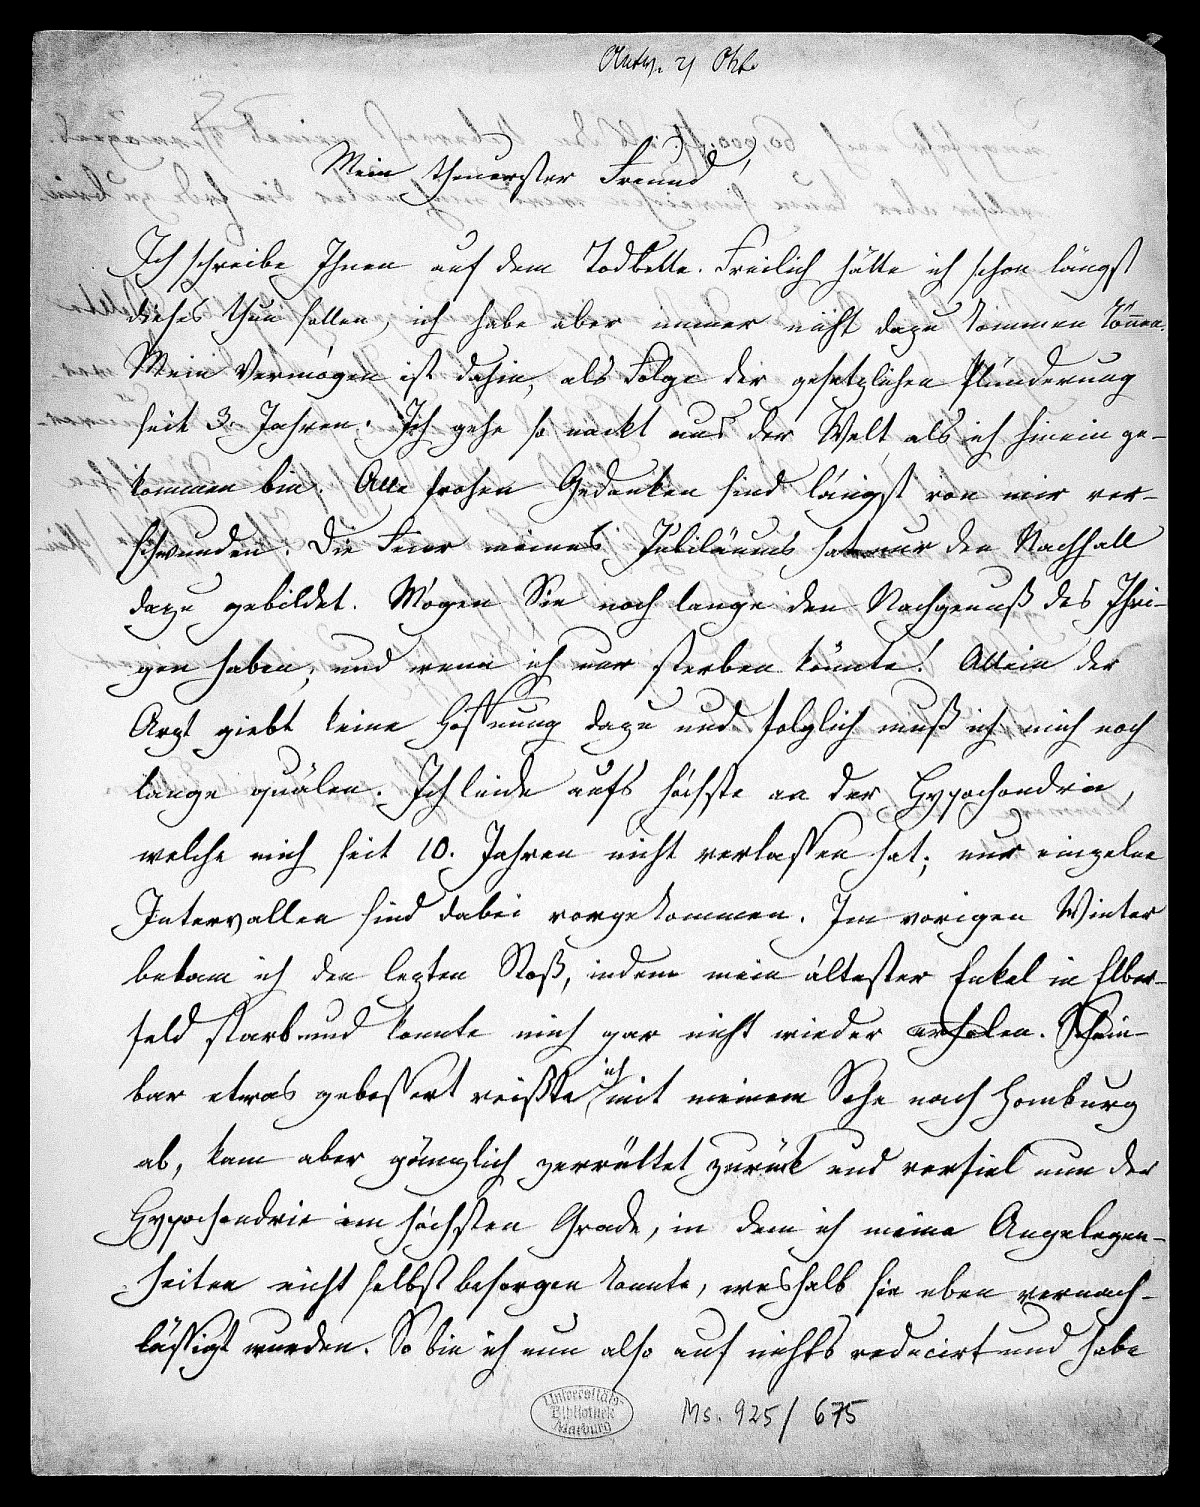 Antw. 21 Okt.
Mein theuerster Freund!
Ich schreibe Ihnen auf dem Todbette. Freilich hätte ich schon längst
dieses thun sollen, ich habe aber immer nicht dazu kommen können.
Mein Vermögen ist dahin, als Folge der gesetzlichen Plünderung
seit 3. Jahren. Ich gehe so nackt aus der Welt als ich hinein ge-
kommen bin. Alle frohen Gedanken sind längst von mir ver-
schwunden. Die Feier meines Jubiläums hat nur den Nachhall
dazu gebildet. Mögen Sie noch lange den Nachgenuß des Ihri-
gen haben; und wenn ich nur sterben könnte! Allein der
Arzt giebt keine Hoffnung dazu und folglich muß ich mich noch
lange quälen. Ich leide aufs höchste an der Hypochondrie,
welche mich seit 10. Jahren nicht verlassen hat; nur einzelne
Intervallen sind dabei vorgekommen. Im vorigen Winter
bekam ich den lezten Stoß, indem mein ältester Enkel in Elber-
feld starb und konnte mich gar nicht wieder erholen. Schein-
bar etwas gebessert reißte ich mit meinem Sohn nach Homburg
ab, kam aber gänzlich zerrüttet zurück und verfiel nun der
Hypochondrie im höchsten Grade, in dem ich meine Angelegen-
heiten nicht selbst besorgen konnte, weshalb sie eben vernach-
lässigt wurden. So bin ich nun also auf nichts reducirt und habe
Universitäts-
Bibliothek
Marburg
Ms. 925/675